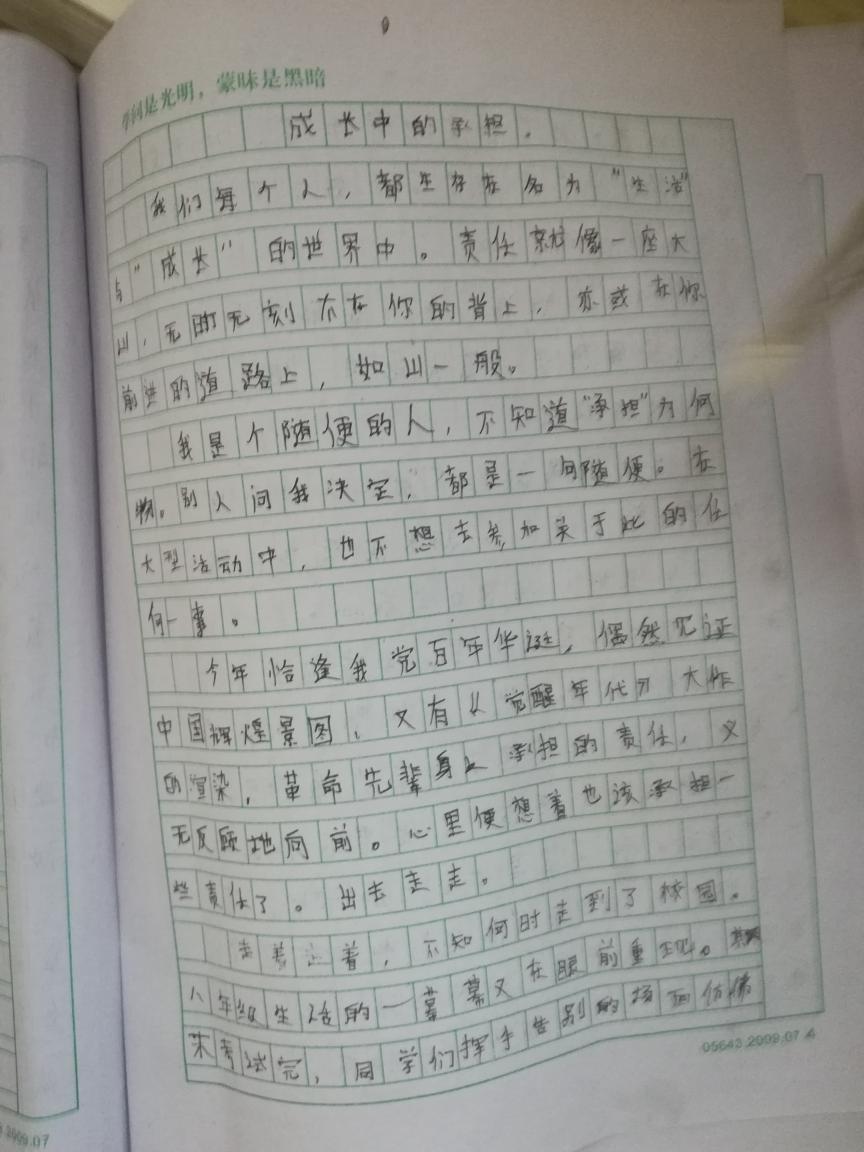 学问是光明，蒙昧是黑暗
成长中的承担．
我们每个人，都生存在名为“生活”
与“成长”的世界中。责任就像一座大
山，无时无刻不在你的背上，亦或在你
前进的道路上，如山一般。
我是个随便的人，不知道“承担”为何
物。别人问我决定，都是一句随便。在
大型活动中，也不想去参加关于此的任
何一事。
今年恰逢我党百年华诞，偶然见证
中国辉煌景图，又有以觉醒年代为大作
的渲染，革命先辈身上承担的责任，义
无反顾地向前。心里便想着也该承担一
些责任了。出去走走。
走着走着，不知何时走到了校园。
八年级生活的一幕幕又在眼前重现。
末考试完，同学们挥手告别的场面仿佛
05643.2009.07
.2009.07